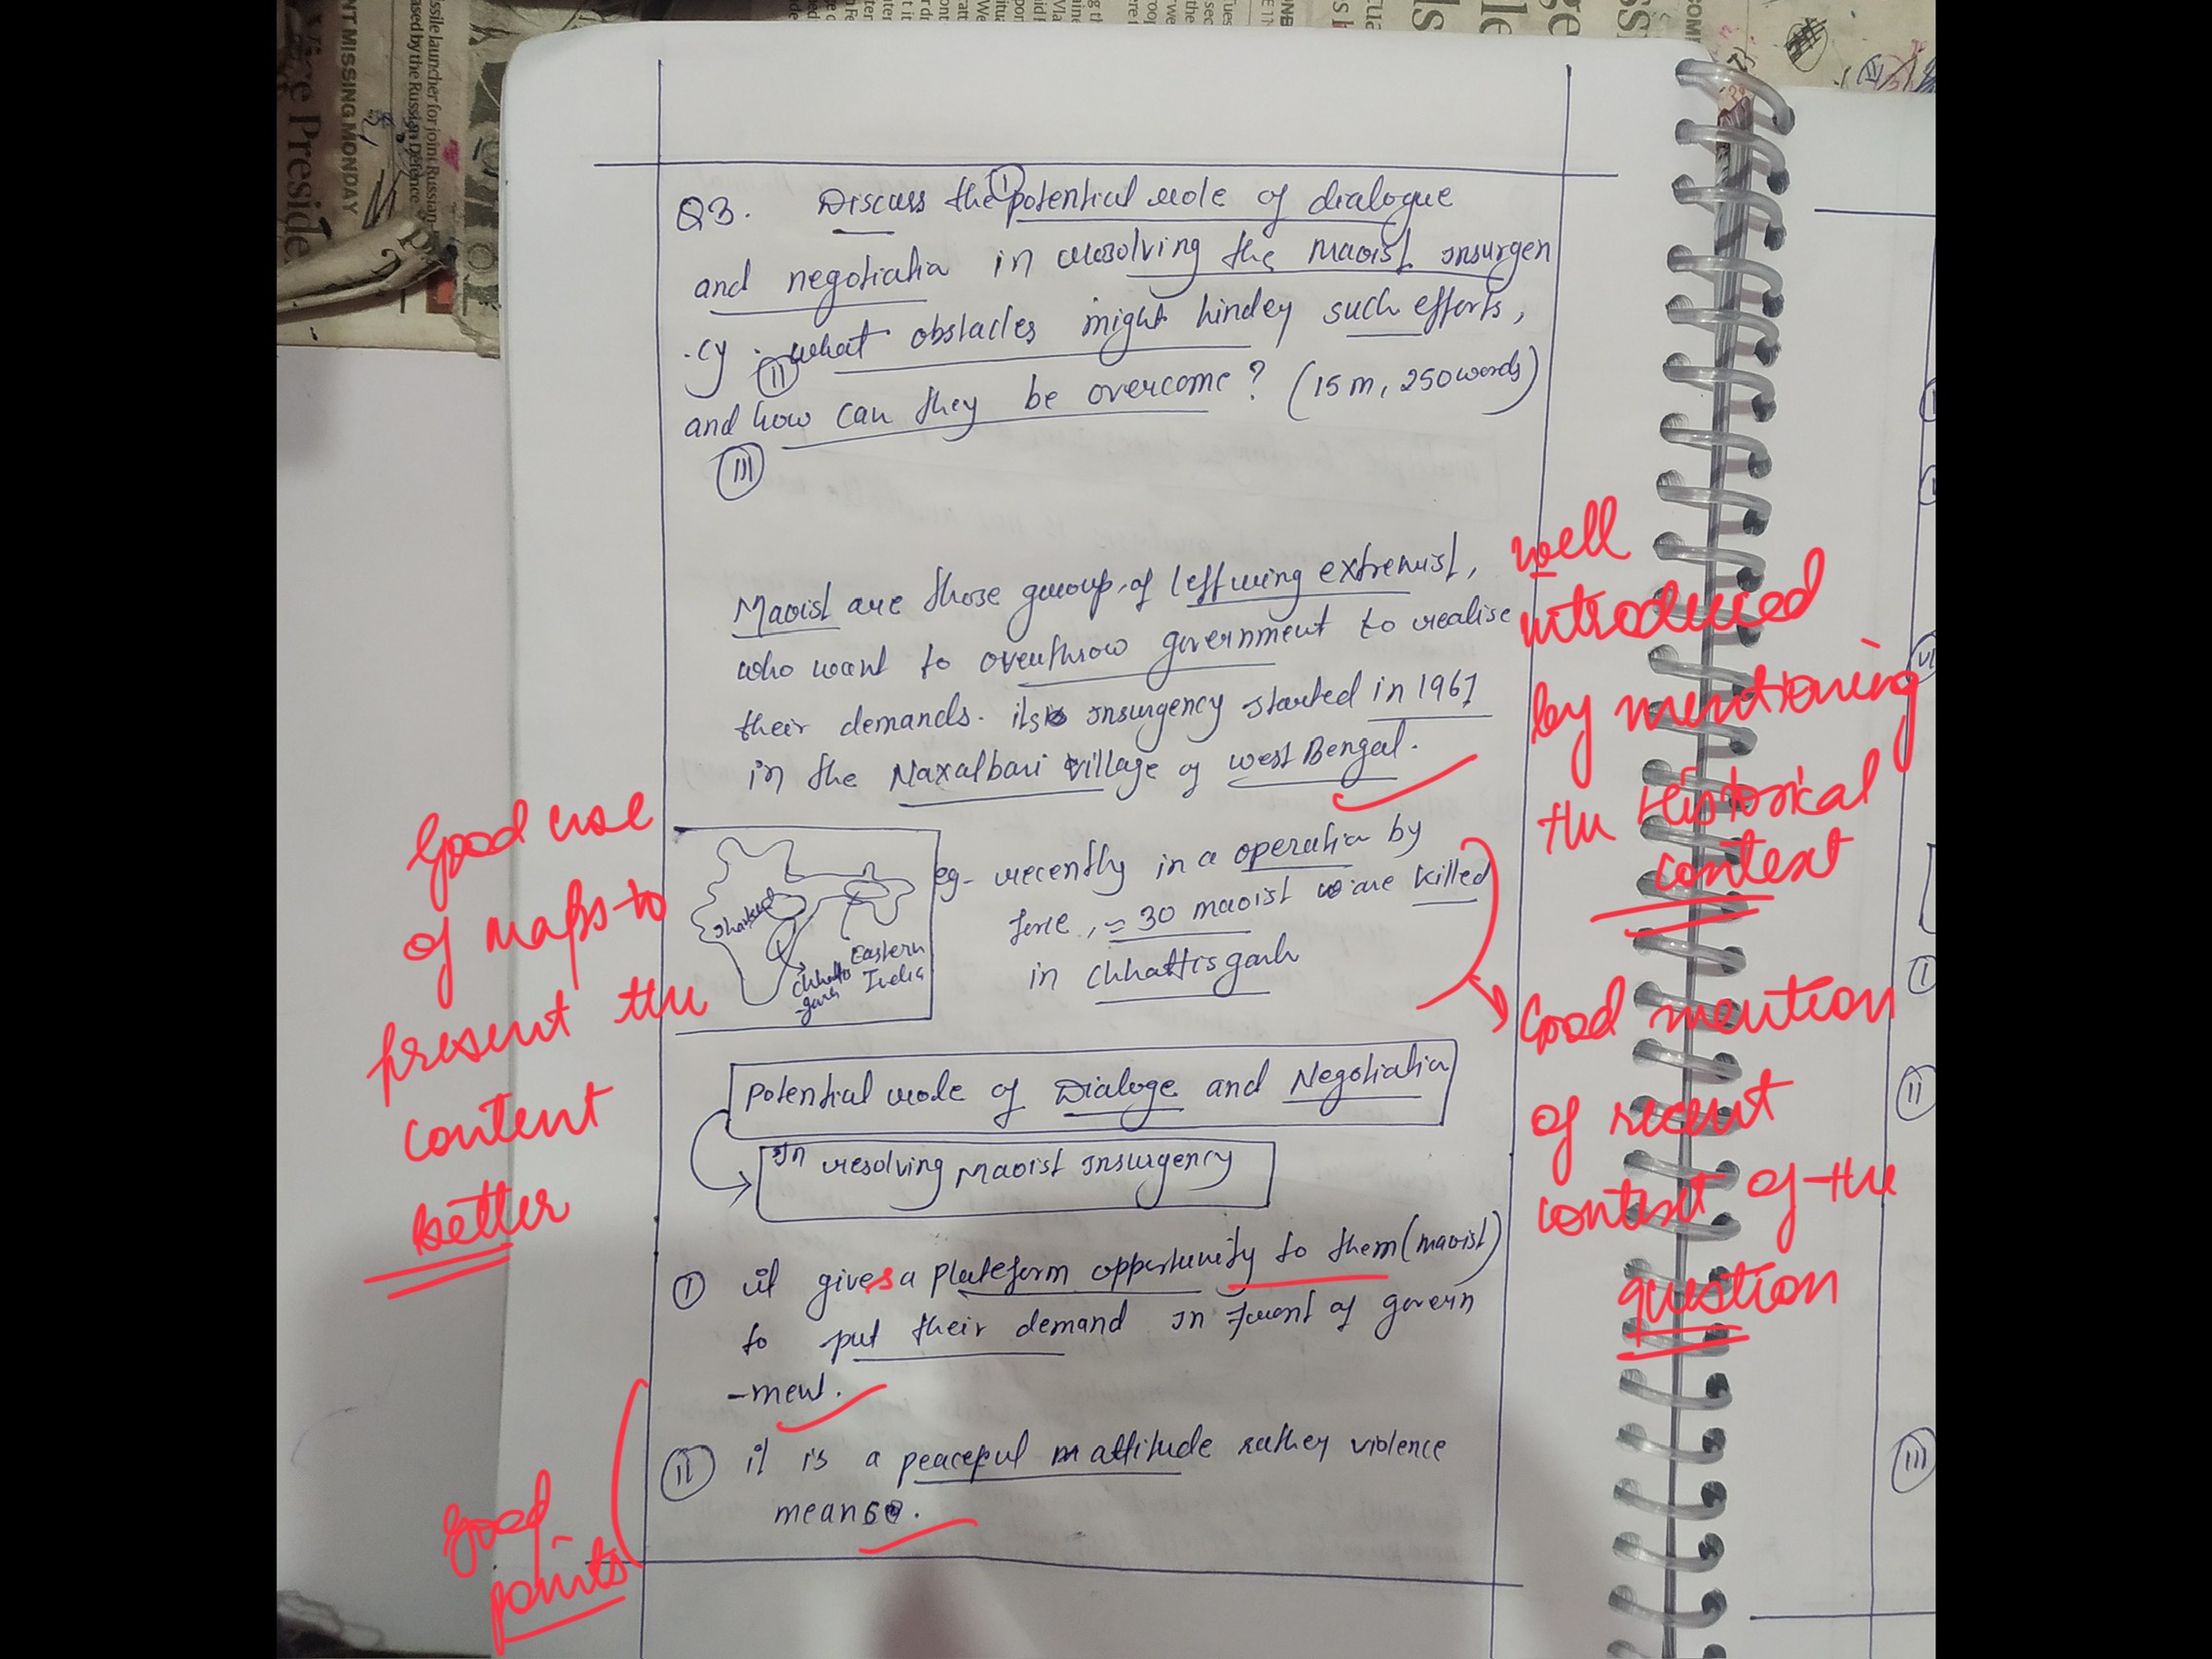 Q3. Discuss the (I) potential role of dialogue
and negotiatia in resolving the Maoist insurgen
-cy. (II) what obstacles might hinder such efforts,
and how can they be overcome? (15m, 250words)
(III)
Maoist are those group of leftwing extremist,
who want to overthrow government to realise
their demands. its insurgency started in 1967
in the Naxalbari village of west Bengal.
eg- recently in a operatia by
force, ≈ 30 maoist are killed
in chhattisgarh
Jharkhand
chhatis
-garh
Eastern
India
Potential role of Dialoge and Negotiatia
In resolving Maoist Insurgency
(I) it gives a plateform opportunity to them (maoist)
to put their demand in front of govern
-ment.
(II) it is a peaceful attitude rather violence
means.
well
introduced
by mentioning
the Historical
context
Good mention
of recent
context of the
question
Good use
of maps to
present the
content
better
good
points
Vice Preside
NT MISSING MONDAY
ssile launcher for joint Russian-
ased by the Russian Defence